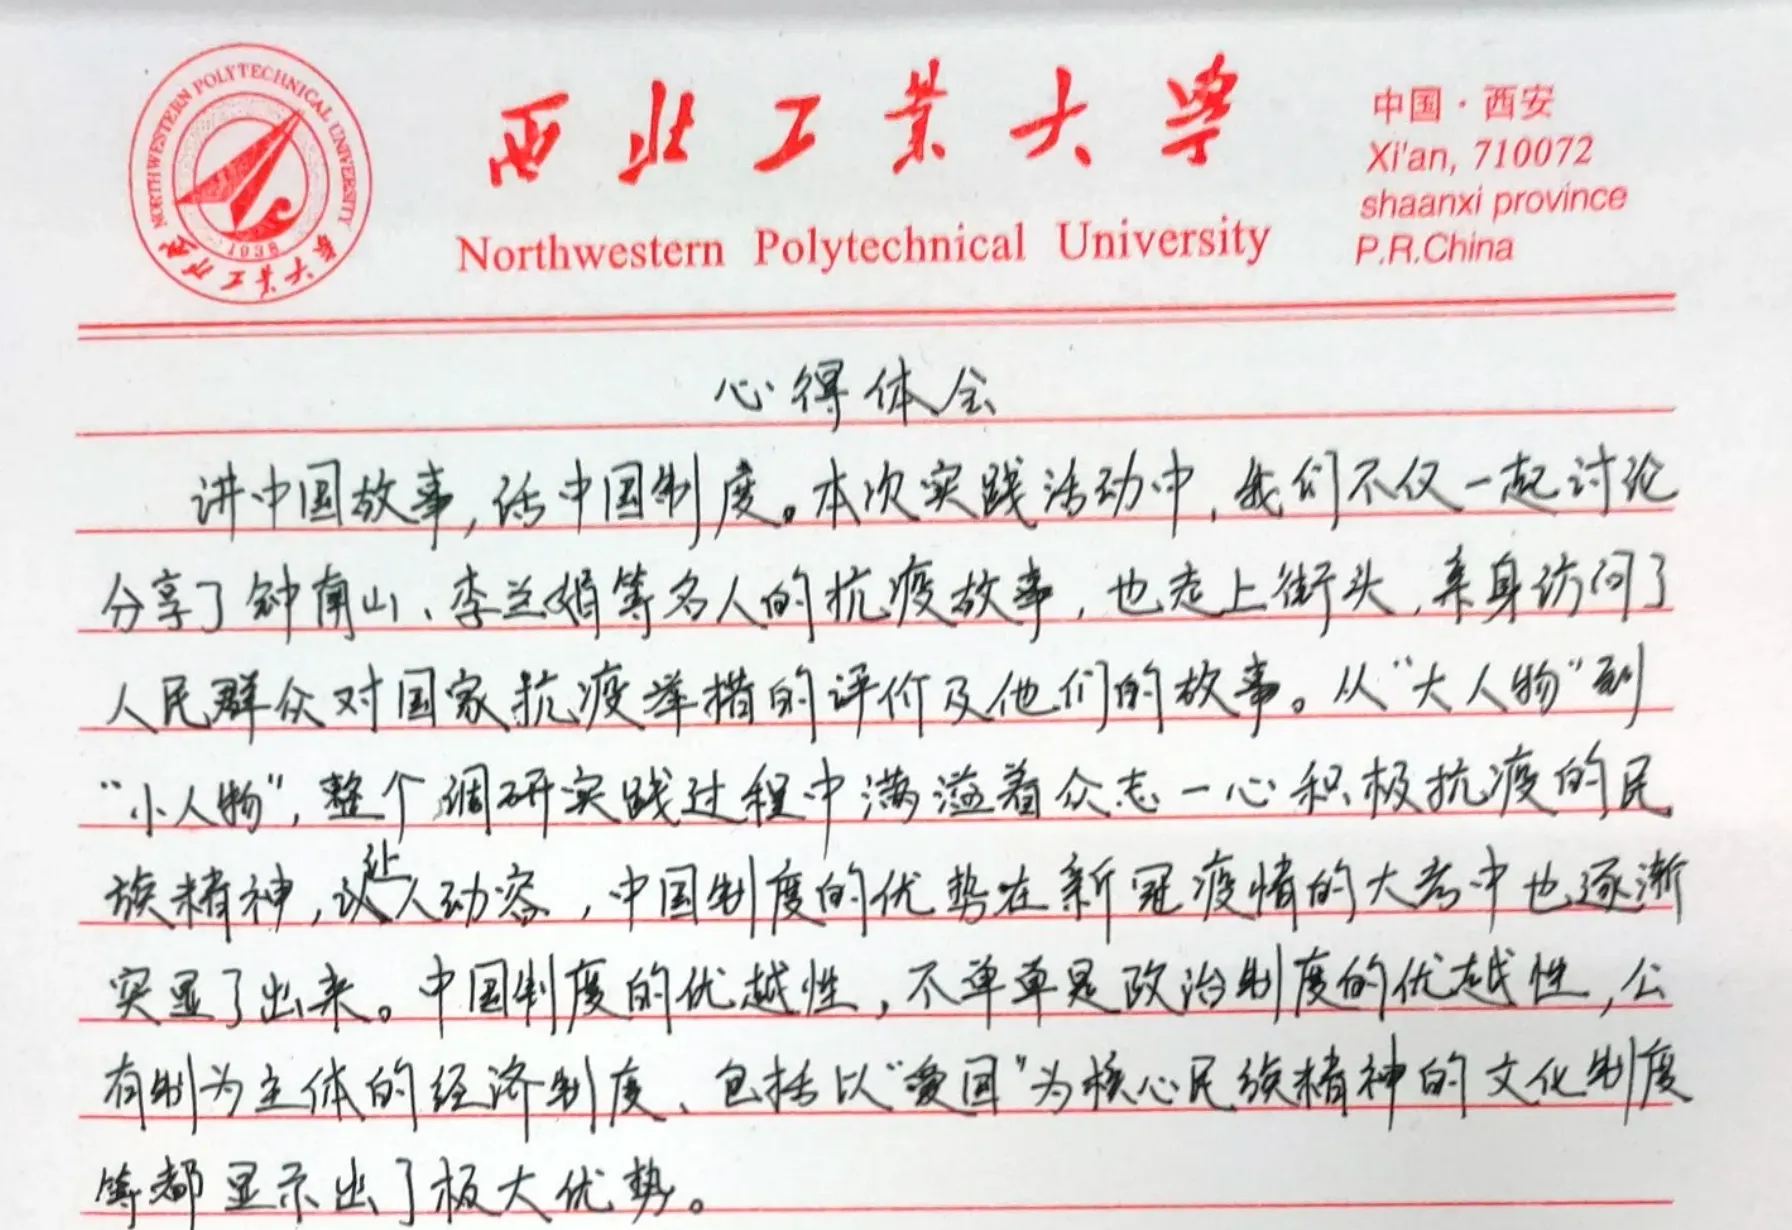 NORTHWESTERN POLYTECHNICAL UNIVERSITY
1938
西北工业大学
西北工业大学
Northwestern Polytechnical University
中国·西安
Xi'an, 710072
shaanxi province
P.R.China
心得体会
讲中国故事,话中国制度。本次实践活动中,我们不仅一起讨论
分享了钟南山、李兰娟等名人的抗疫故事,也走上街头,亲身访问了
人民群众对国家抗疫举措的评价及他们的故事。从“大人物”到
“小人物”,整个调研实践过程中满溢着众志一心积极抗疫的民
族精神,让人动容,中国制度的优势在新冠疫情的大考中也逐渐
突显了出来。中国制度的优越性,不单单是政治制度的优越性,公
有制为主体的经济制度、包括以“爱国”为核心民族精神的文化制度
等都显示出了极大优势。